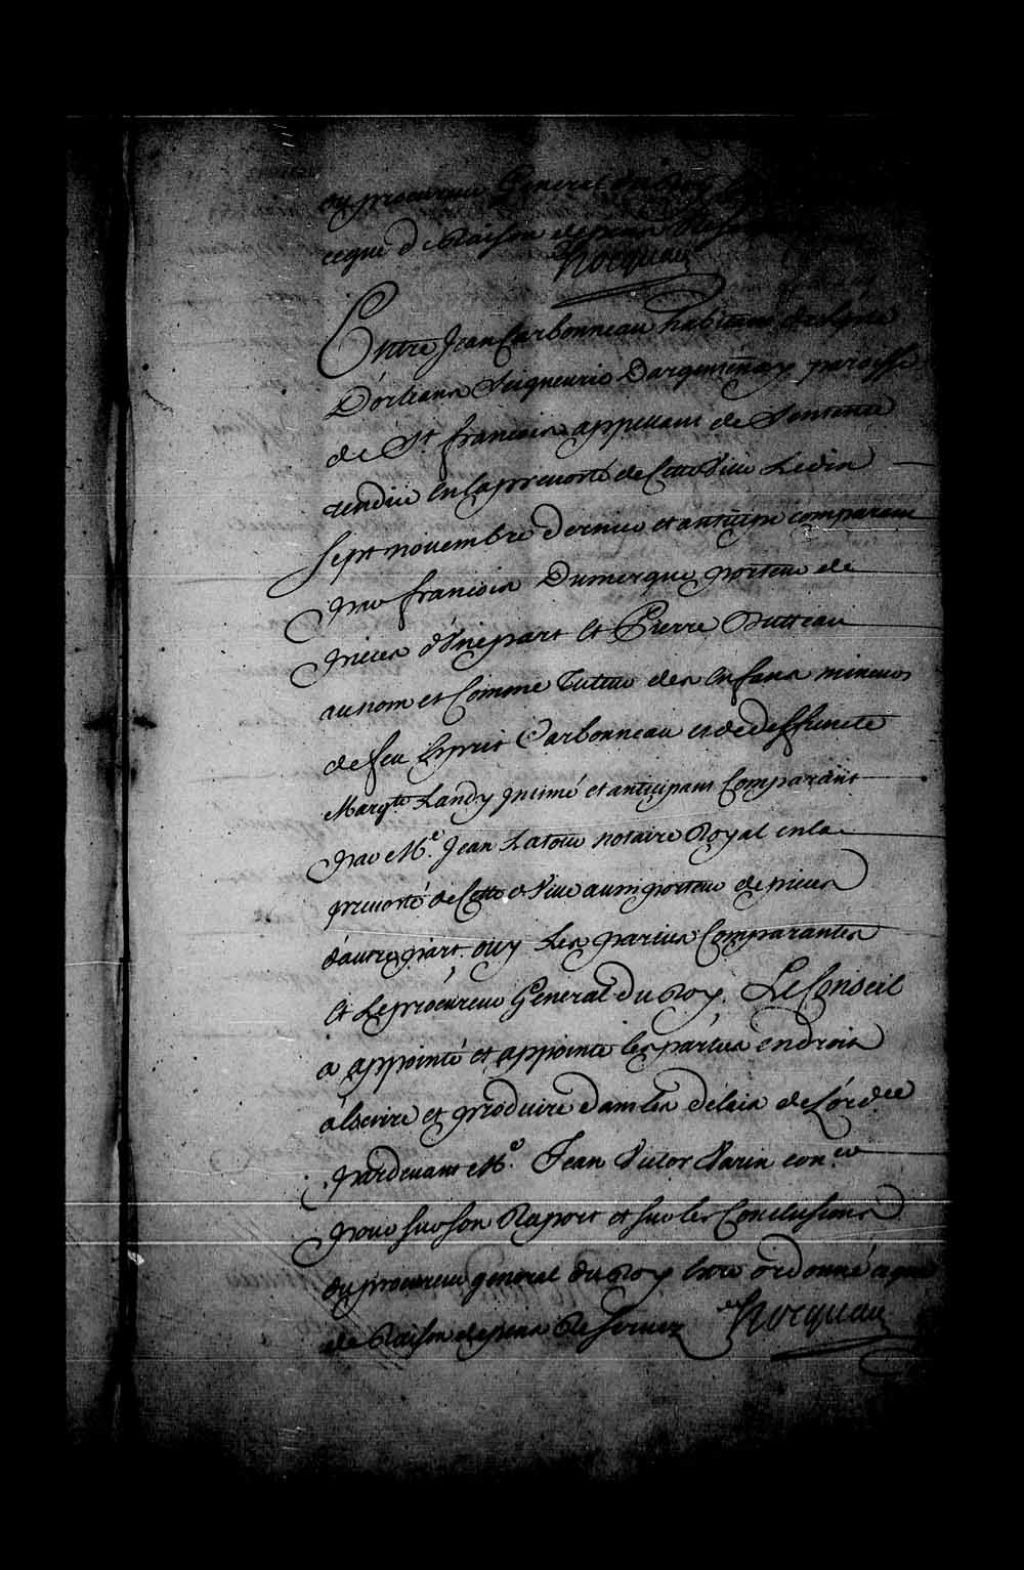 du procureur General du Roy
ceque de Raison depens Reservez
Hocquart
Entre Jean Carbonneau habitant de lisle
D'orleans Seigneurie Dargentenay paroisse
de St. francois appellant de Sentence
rendüe en la prevosté de Cette Ville Le dix
Sept novembre dernier et anticipé comparant
par francois Dumergue porteur de
pieces d'Une part Et Pierre Butteau
au nom et Comme Tuteur des Enfans mineurs
de feu Esprit Carbonneau et de deffuncte
Margte. Landy intimé et anticipant Comparant
par Me. Jean Latour notaire Royal en la
prevosté de Cette Ville aussi porteur de pieces
d'autre part. ouy Les parties Comparantes
Et Le procureur General Du Roy. Le Conseil
a appointé et appointe les parties en droit
a Escrire et produire dans les délais de L'ordce
pardevant Me. Jean Victor Varin conér
pour sur son Raport et sur les Conclusions
du procureur general du Roy Estre ordonné ce que
de Raison depens Reservez Hocquart